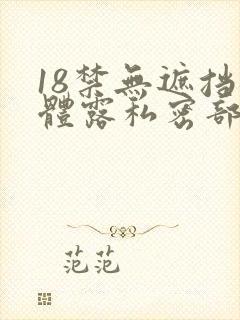 18禁無遮挡
體露私密部
范范